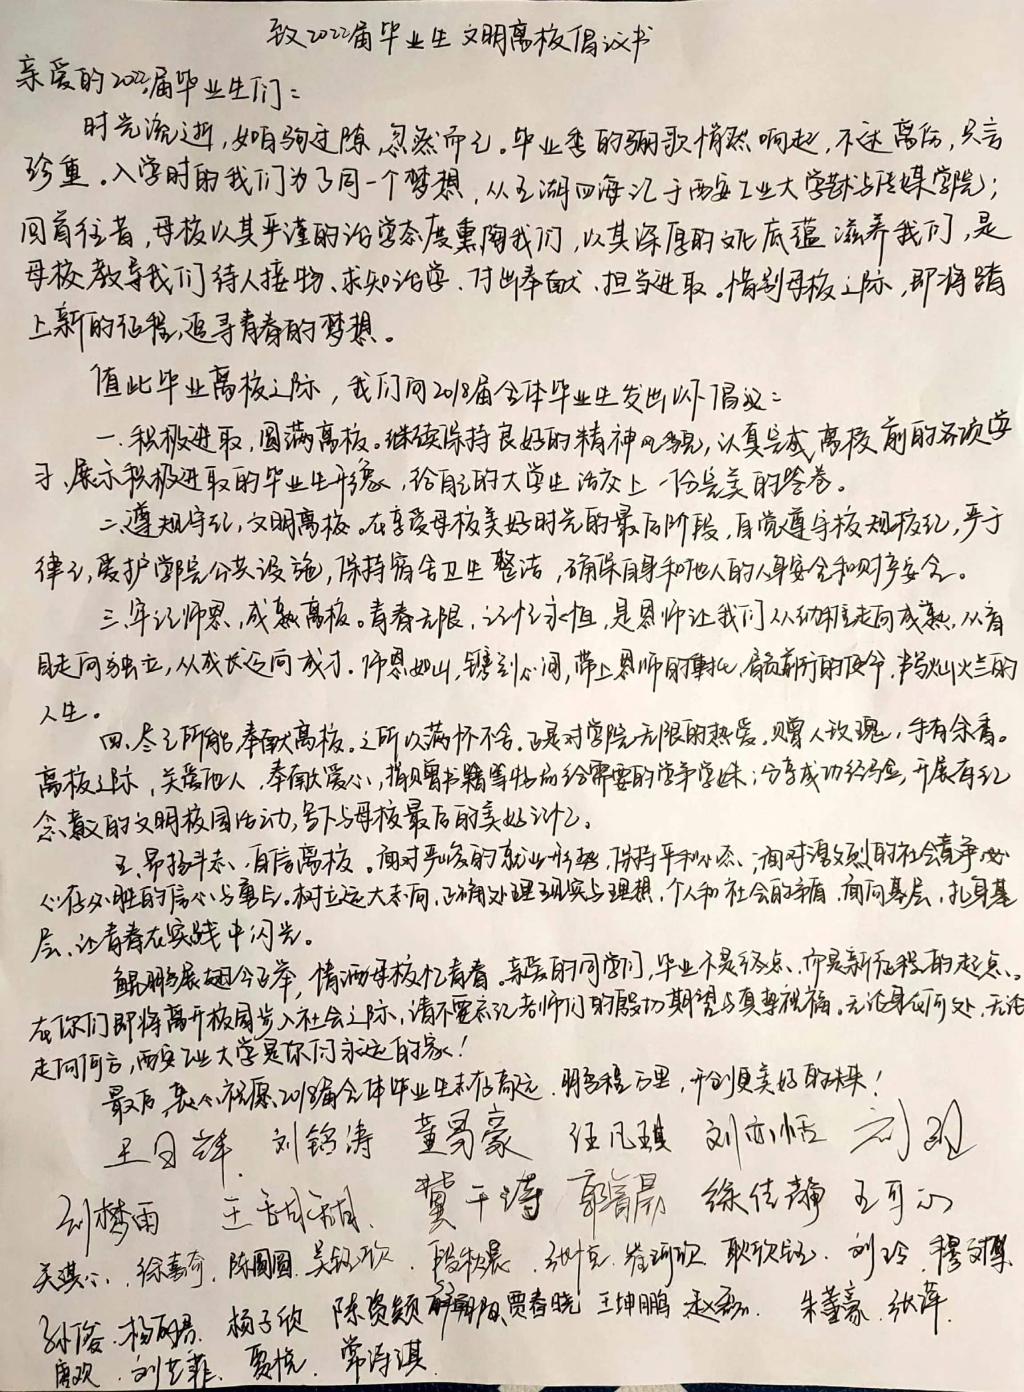 致2022届毕业生文明离校倡议书
亲爱的2022届毕业生们：
时光流逝，如白驹过隙，忽然而已。毕业季的骊歌悄然响起，不述离伤，只言
珍重。入学时的我们为了同一个梦想，从五湖四海汇于西安工业大学艺术与传媒学院；
回首往昔，母校以其严谨的治学态度熏陶我们，以其深厚的文化底蕴滋养我们，是
母校教导我们待人接物、求知治学、付出奉献、担当进取。惜别母校之际，即将踏
上新的征程，追寻青春的梦想。
值此毕业离校之际，我们向2018届全体毕业生发出以下倡议：
一、积极进取，圆满离校。继续保持良好的精神风貌，认真完成离校前的各项学
习、展示积极进取的毕业生形象，给自己的大学生活交上一份完美的答卷。
二、遵规守纪，文明离校。在享受母校美好时光的最后阶段，自觉遵守校规校纪，严于
律己，爱护学院公共设施，保持宿舍卫生整洁，确保自身和他人的人身安全和财产安全。
三、牢记师恩，成熟离校。青春无限，记忆永恒，是恩师让我们从幼稚走向成熟，从盲
目走向独立，从成长迈向成才。师恩如山，镌刻心间，带上恩师的教化，肩负前行的使命，书写灿烂的
人生。
四、尽己所能，奉献离校。之所以满怀不舍，正是对学院无限的热爱。赠人玫瑰，手有余香。
离校之际，关爱他人，奉献爱心，捐赠书籍等物品给需要的学弟学妹；分享成功经验，开展有纪
念意义的文明校园活动，留下与母校最后的美好记忆。
五、昂扬斗志、自信离校。面对严峻的就业形势，保持平和心态；面对激烈的社会竞争
心存必胜的信心与勇气。树立远大志向，正确处理现实与理想，个人和社会的矛盾，面向基层，扎身基
层，让青春在实践中闪光。
鲲鹏展翅今正举，情洒母校忆青春。亲爱的同学们，毕业不是终点、而是新征程的起点。
在你们即将离开校园步入社会之际，请不要忘记老师们的殷切期望与真挚祝福。无论身在何处，无论
走向何方，西安工业大学是你们永远的家！
最后，衷心祝愿2018届全体毕业生志存高远，鹏程万里，开创更美好的未来！
王日辉 刘铭涛 董易豪 任凡琪 刘亦恬
刘梦雨 冀千诗 郭睿勋 徐佳静 王可心
吴淇心 徐嘉奇 陈圆圆 吴钰欣 段秋晨 张恒 耿欣钰 刘玲
孙俊 杨子欣 陈资颖 贾春晓 王坤鹏 赵磊 朱董豪 张萍
唐欢 刘芷菲 贾悦 常诗淇